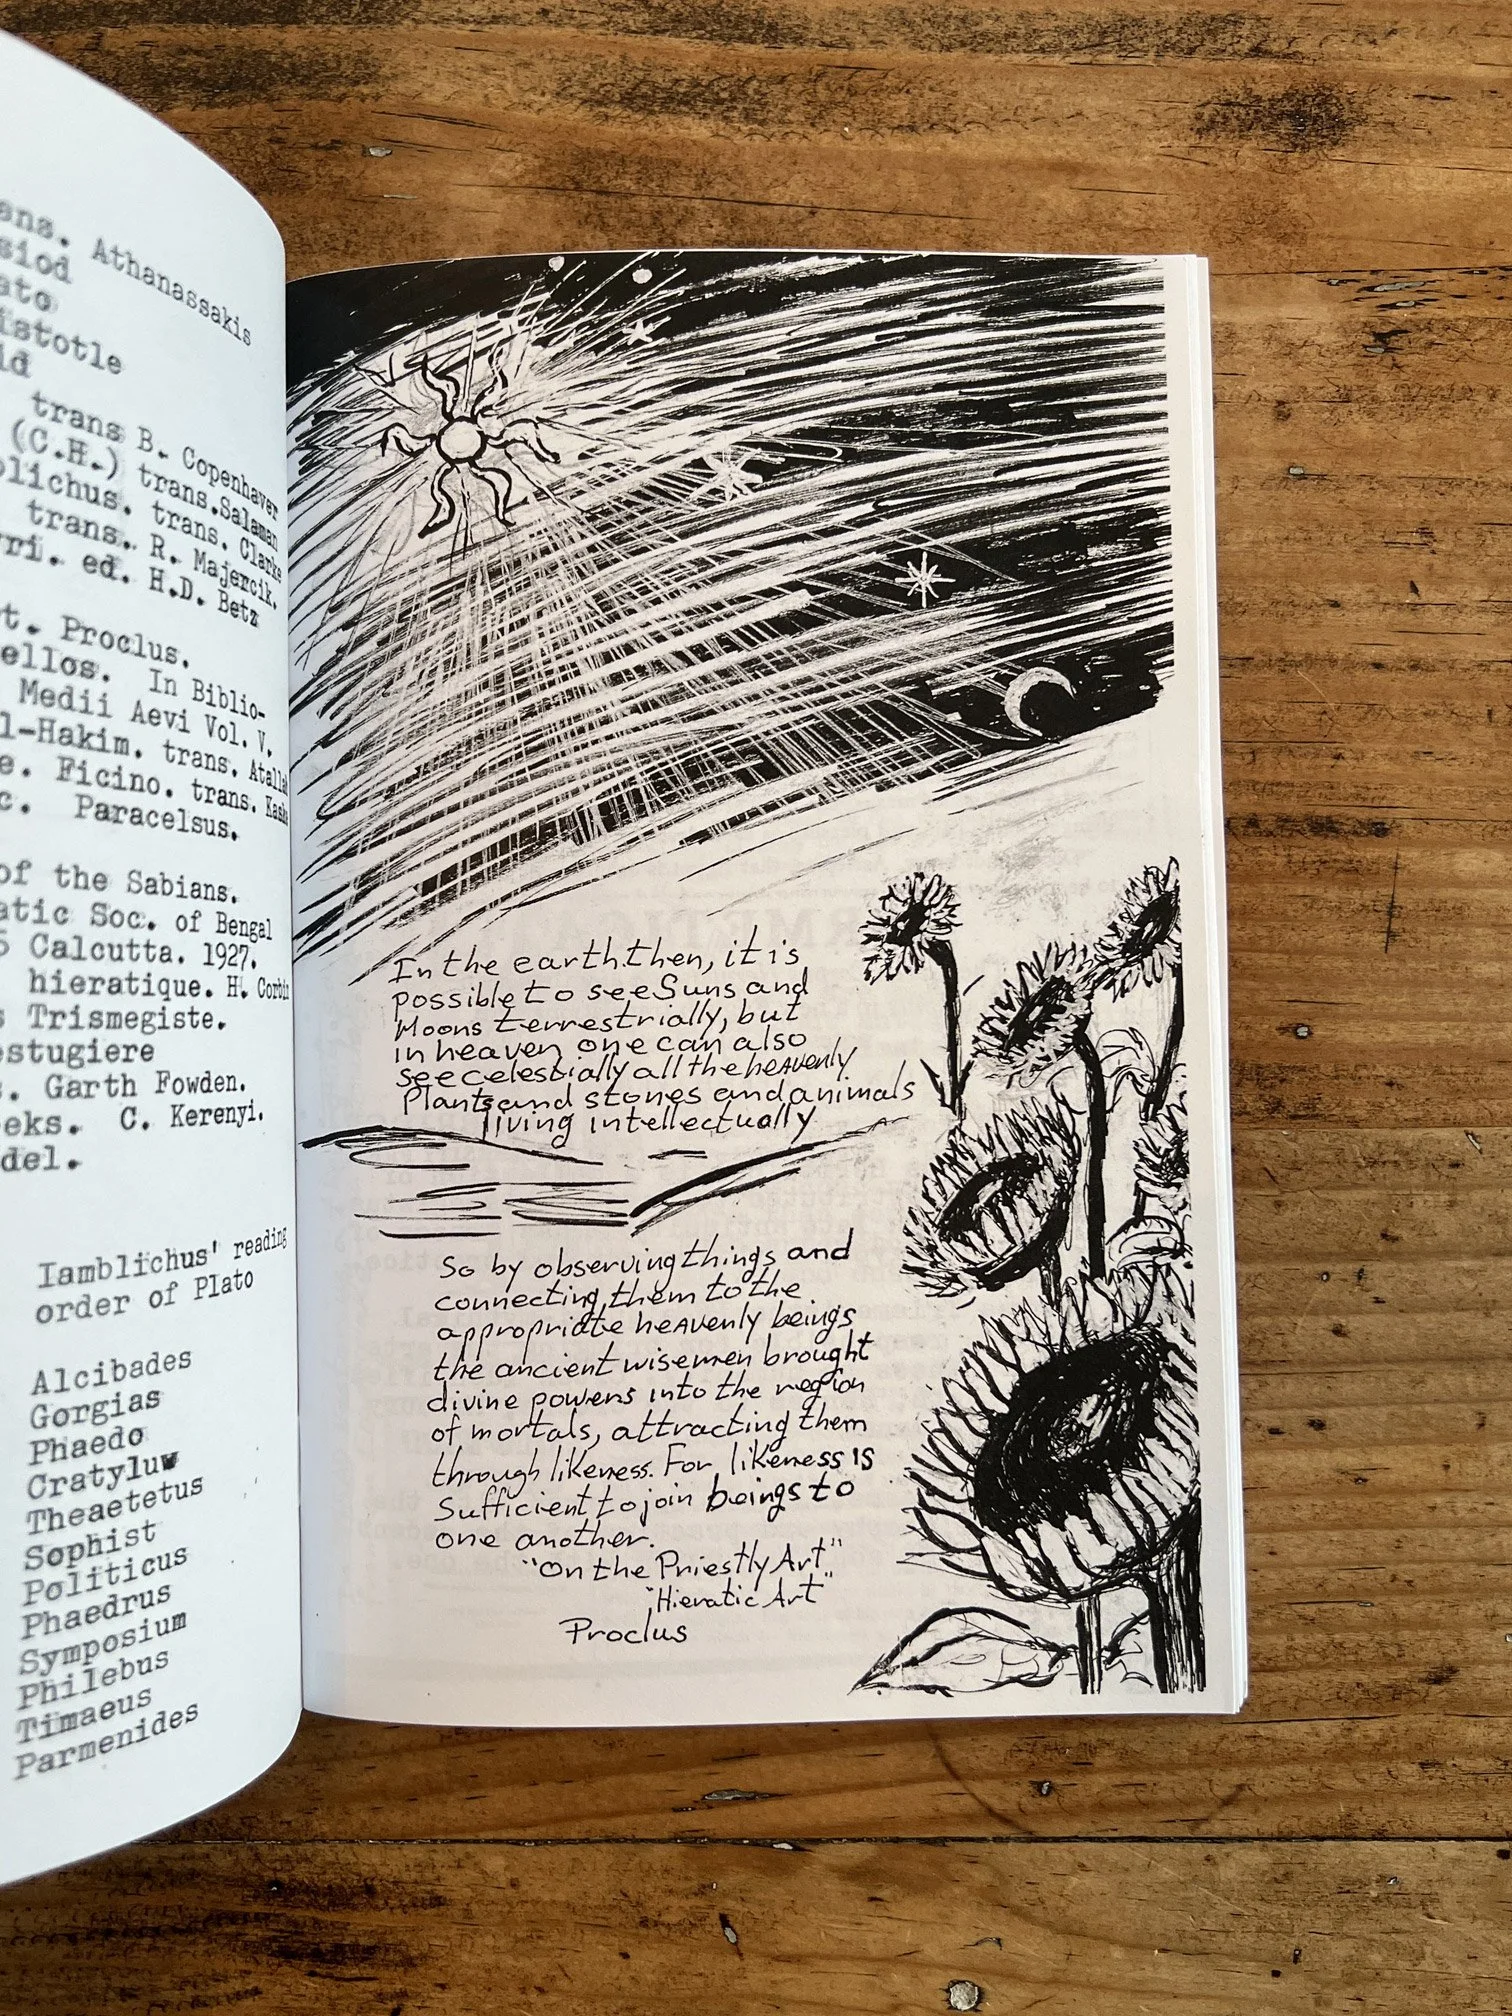 Athanassakis
istotle
trans B. Copenhaver
(C.H.) trans.Salaman
trans. Clarke
trans. R. Majercik.
ed. H.D. Betz
Proclus.
In Biblio-
Medii Aevi Vol. V.
trans.
Ficino. trans.
Paracelsus.
of the Sabians.
Soc. of Bengal
Calcutta. 1927.
hieratique. H. Corbin
Trismegiste.
estugiere
Garth Fowden.
C. Kerenyi.
Iamblichus' reading
order of Plato
Alcibades
Gorgias
Phaedo
Cratylus
Theaetetus
Sophist
Politicus
Phaedrus
Symposium
Philebus
Timaeus
Parmenides
In the earth then, it is
possible to see Suns and
Moons terrestrially, but
in heaven one can also
see celestially all the heavenly
Plants and stones and animals
living intellectually
So by observing things and
connecting them to the
appropriate heavenly beings
the ancient wisemen brought
divine powers into the region
of mortals, attracting them
through likeness. For likeness is
Sufficient to join beings to
one another.
"On the Priestly Art"
"Hieratic Art"
Proclus